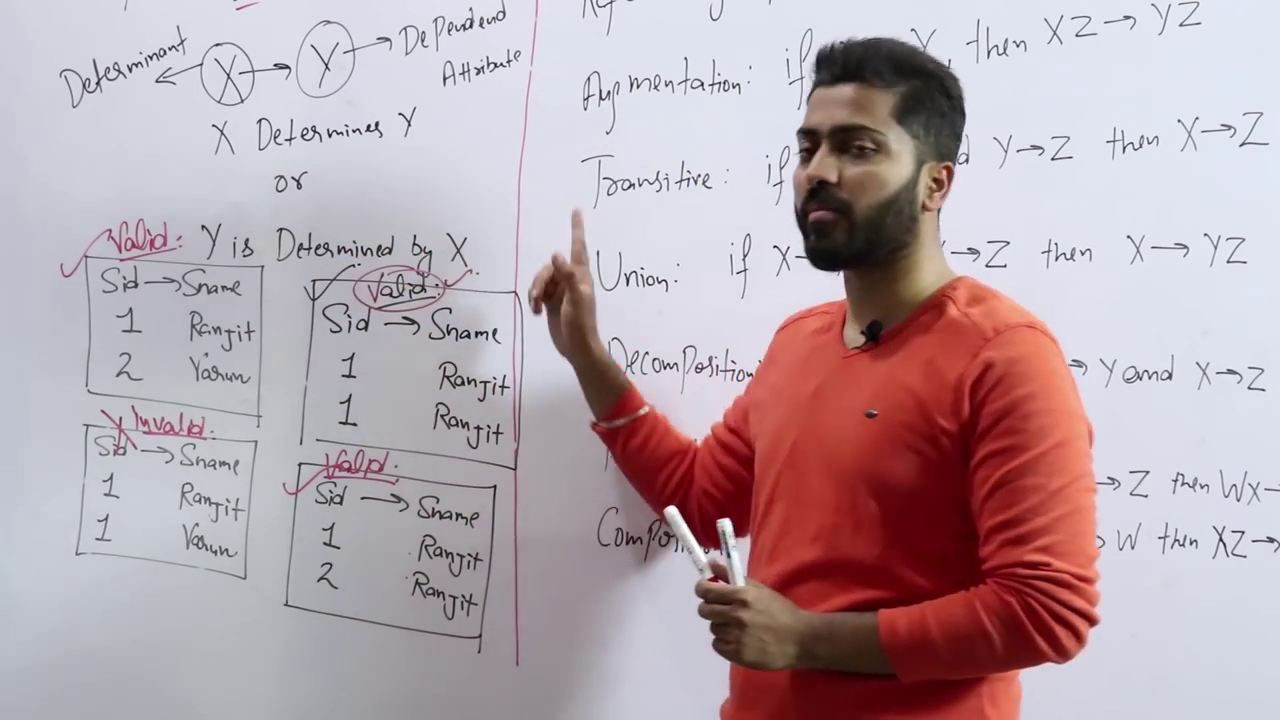 Determinant
X → Y → Dependend
Attribute
X Determines Y
or
Valid: Y is Determined by X
Sid → Sname
1 Ranjit
2 Varun
Valid:
Sid → Sname
1 Ranjit
1 Ranjit
Invalid:
Sid → Sname
1 Ranjit
1 Varun
Valid.
Sid → Sname
1 Ranjit
2 Ranjit
Augmentation: if then XZ → YZ
Transitive: if Y → Z then X → Z
Union: if X → Z then X → YZ
Decomposition Y and X → Z
→ Z then WX →
W then XZ →